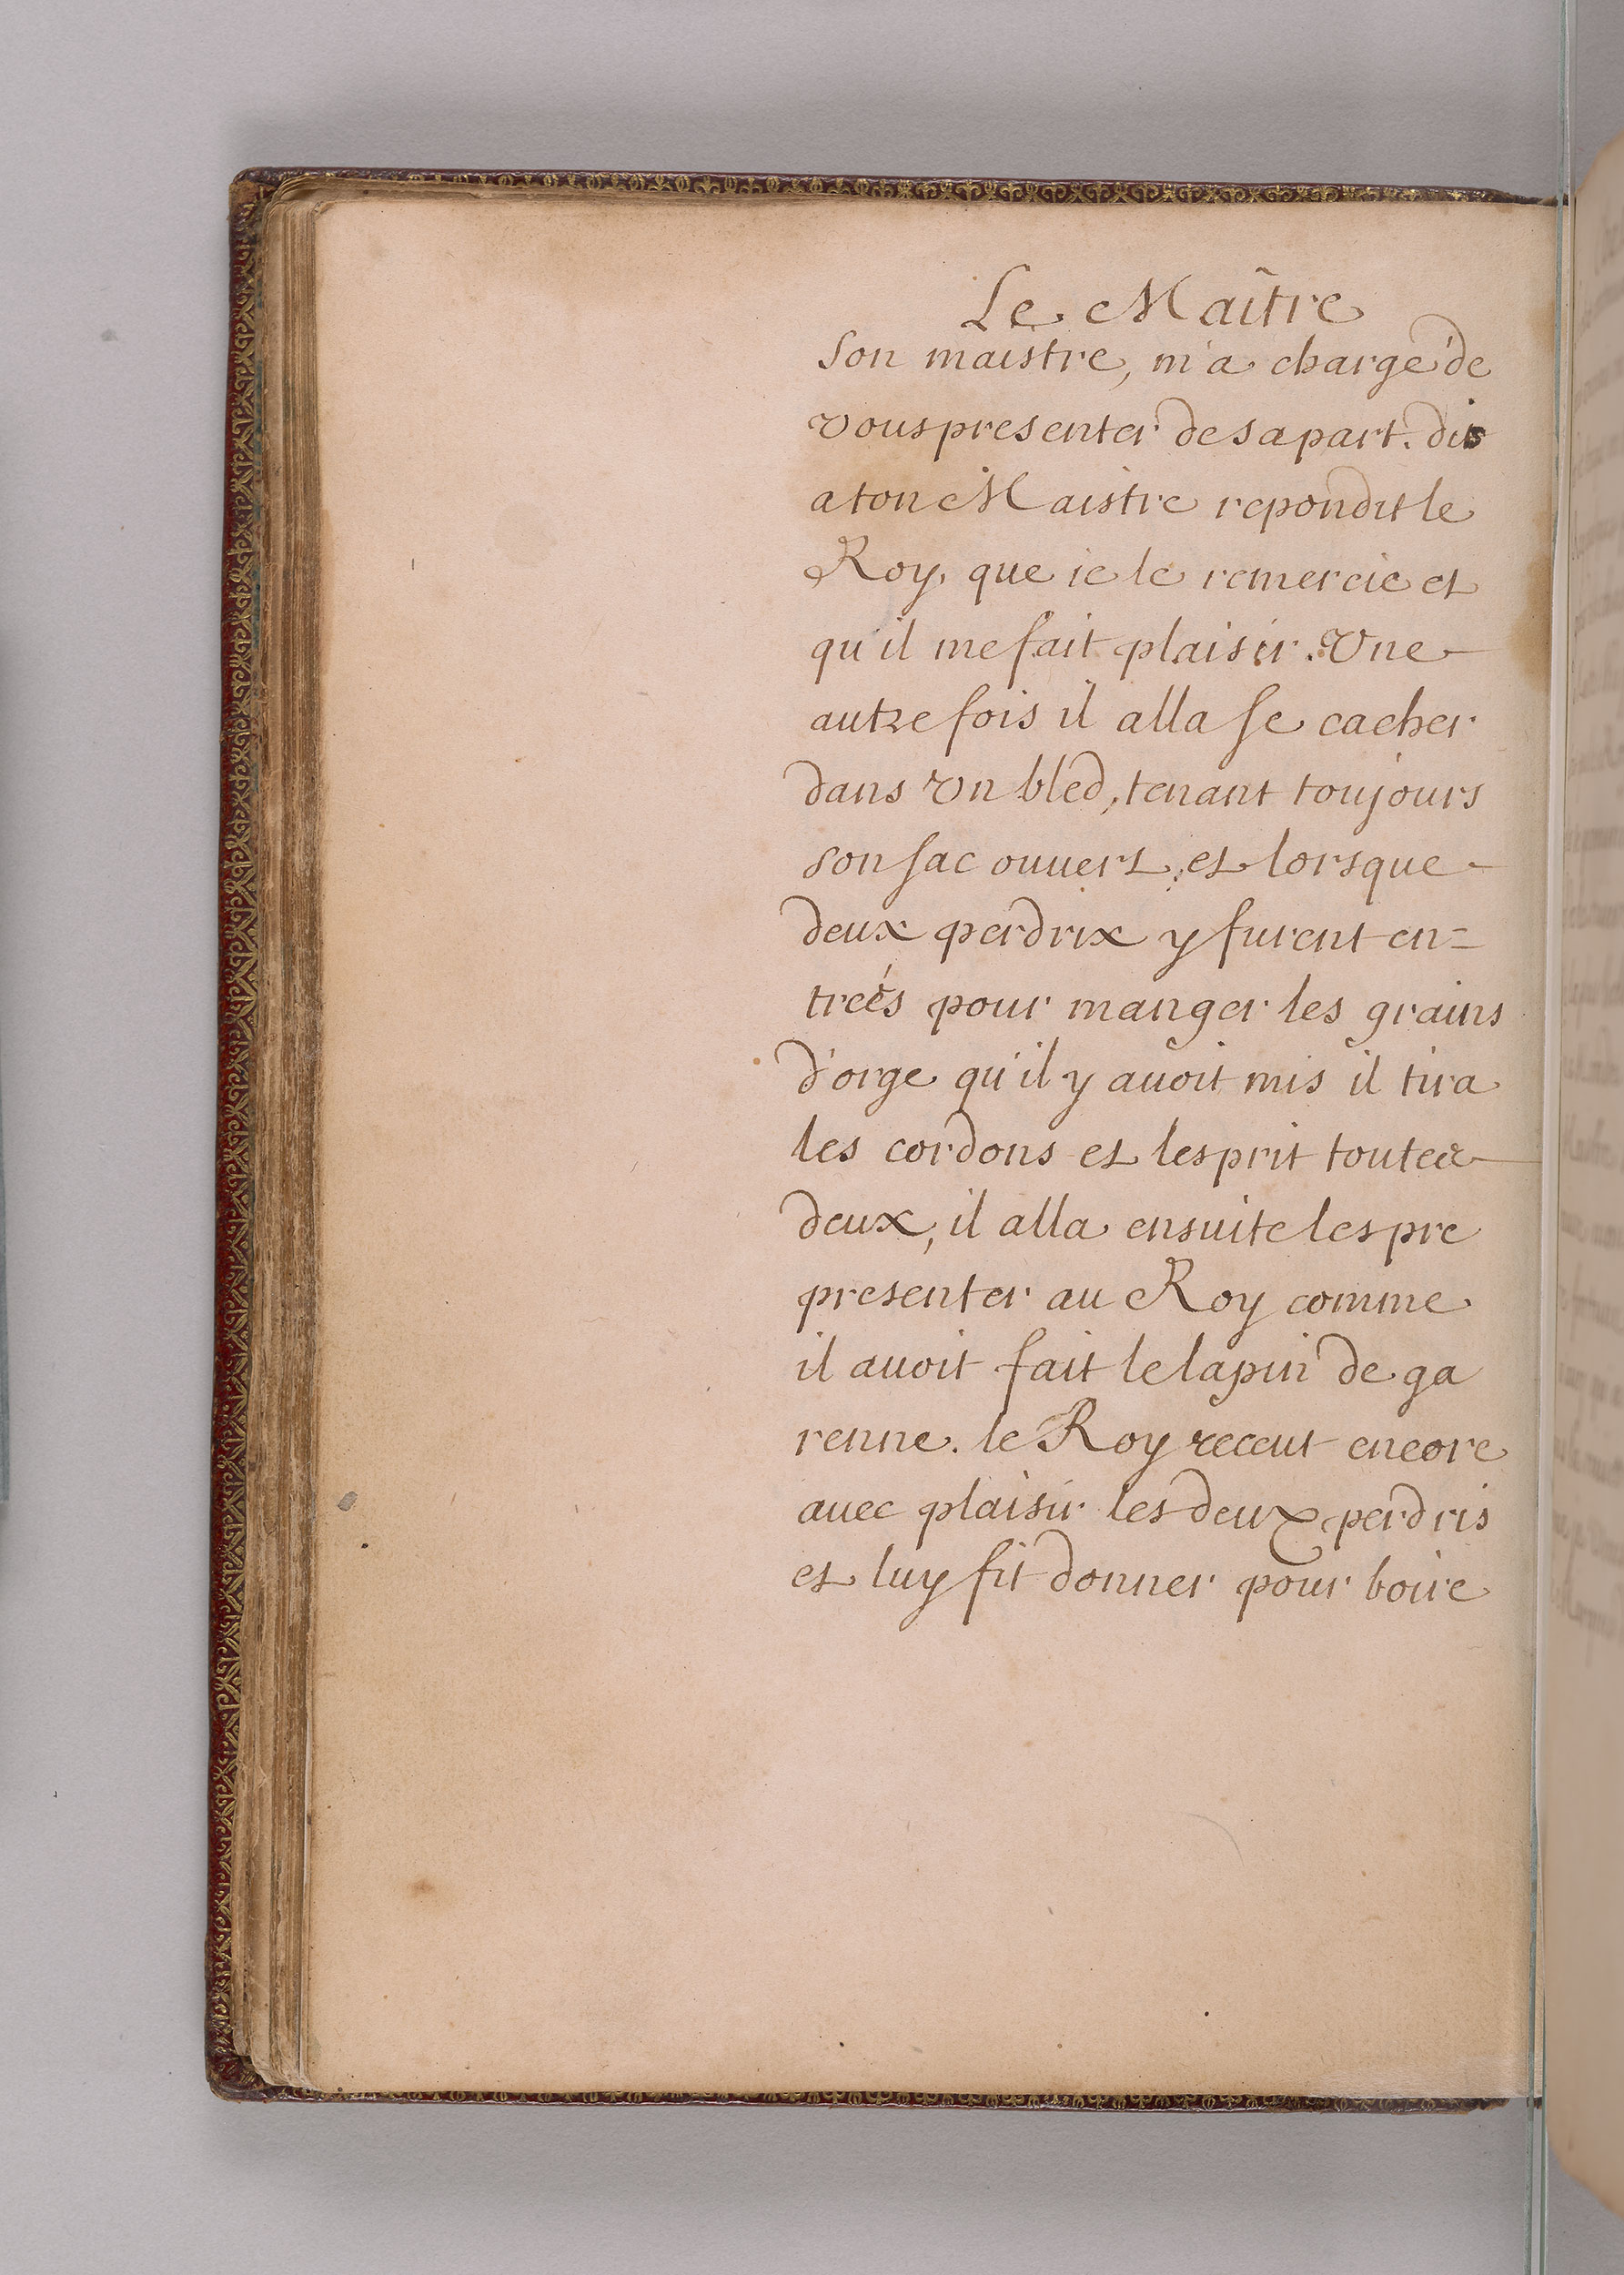 Le Maître
son maistre, m'a chargé de
vous presenter de sa part. dis
a ton Maistre repondit le
Roy, que ie le remercie et
qu'il me fait plaisir. Une
autre fois il alla se cacher
dans un bled, tenant toujours
son sac ouuert, et lorsque
deux perdrix y furent en=
treés pour manger les grains
d'orge qu'il y auoit mis il tira
les cordons et les prit toutes
deux, il alla ensuite les pre
presenter au Roy comme
il auoit fait le lapin de ga
renne. le Roy receut encore
auec plaisir les deux perdris
et luy fit donner pour boire